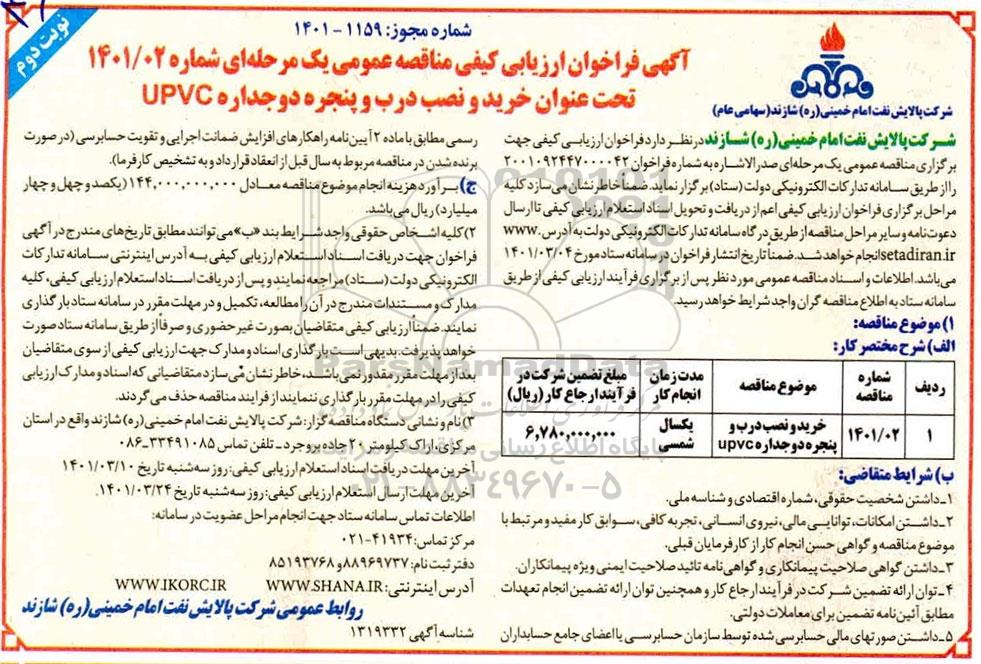 نوبت دوم
شماره مجوز: ۱۱۵۹ - ۱۴۰۱
آگهی فراخوان ارزیابی کیفی مناقصه عمومی یک مرحله‌ای شماره ۱۴۰۱/۰۲
تحت عنوان خرید و نصب درب و پنجره دوجداره UPVC
شرکت پالایش نفت امام خمینی (ره) شازند (سهامی عام)
شرکت پالایش نفت امام خمینی (ره) شازند در نظر دارد فراخوان ارزیابی کیفی جهت
برگزاری مناقصه عمومی یک مرحله‌ای صدرالاشاره به شماره فراخوان ۲۰۰۱۰۹۲۴۴۷۰۰۰۰۴۲
را از طریق سامانه تدارکات الکترونیکی دولت (ستاد) برگزار نماید. ضمناً خاطر نشان می‌سازد کلیه
مراحل برگزاری فراخوان ارزیابی کیفی اعم از دریافت و تحویل اسناد استعلام ارزیابی کیفی تا ارسال
دعوت‌نامه و سایر مراحل مناقصه از طریق درگاه سامانه تدارکات الکترونیکی دولت به آدرس www.
setadiran.ir انجام خواهد شد. ضمناً تاریخ انتشار فراخوان در سامانه ستاد مورخ ۱۴۰۱/۰۳/۰۴
می‌باشد. اطلاعات و اسناد مناقصه عمومی مورد نظر پس از برگزاری فرآیند ارزیابی کیفی از طریق
سامانه ستاد به اطلاع مناقصه گران واجد شرایط خواهد رسید.
۱) موضوع مناقصه:
الف) شرح مختصر کار:
ردیف | شماره مناقصه | موضوع مناقصه | مدت زمان انجام کار | مبلغ تضمین شرکت در فرآیند ارجاع کار (ریال)
۱ | ۱۴۰۱/۰۲ | خرید و نصب درب و پنجره دوجداره upvc | یکسال شمسی | ۶,۷۸۰,۰۰۰,۰۰۰
ب) شرایط متقاضی:
۱ـ داشتن شخصیت حقوقی، شماره اقتصادی و شناسه ملی.
۲ـ داشتن امکانات، توانایی مالی، نیروی انسانی، تجربه کافی، سوابق کار مفید و مرتبط با
موضوع مناقصه و گواهی حسن انجام کار از کارفرمایان قبلی.
۳ـ داشتن گواهی صلاحیت پیمانکاری و گواهی‌نامه تائید صلاحیت ایمنی ویژه پیمانکاران.
۴ـ توان ارائه تضمین شرکت در فرآیند ارجاع کار و همچنین توان ارائه تضمین انجام تعهدات
مطابق آئین‌نامه تضمین برای معاملات دولتی.
۵ـ داشتن صورتهای مالی حسابرسی شده توسط سازمان حسابرسی یا اعضای جامع حسابداران
رسمی مطابق با ماده ۲ آیین‌نامه راهکارهای افزایش ضمانت اجرایی و تقویت حسابرسی (در صورت
برنده شدن در مناقصه مربوط به سال قبل از انعقاد قرارداد و به تشخیص کارفرما).
ج) برآورد هزینه انجام موضوع مناقصه معادل ۱۴۴,۰۰۰,۰۰۰,۰۰۰ (یکصد و چهل و چهار
میلیارد) ریال می‌باشد.
۲) کلیه اشخاص حقوقی واجد شرایط بند «ب» می‌توانند مطابق تاریخ‌های مندرج در آگهی
فراخوان جهت دریافت اسناد استعلام ارزیابی کیفی به آدرس اینترنتی سامانه تدارکات
الکترونیکی دولت (ستاد) مراجعه نمایند و پس از دریافت اسناد استعلام ارزیابی کیفی، کلیه
مدارک و مستندات مندرج در آن را مطالعه، تکمیل و در مهلت مقرر در سامانه ستاد بارگذاری
نمایند. ضمناً ارزیابی کیفی متقاضیان بصورت غیرحضوری و صرفاً از طریق سامانه ستاد صورت
خواهد پذیرفت. بدیهی است بارگذاری اسناد و مدارک جهت ارزیابی کیفی از سوی متقاضیان
بعد از مهلت مقرر مقدور نمی‌باشد، خاطر نشان می‌سازد متقاضیانی که اسناد و مدارک ارزیابی
کیفی را در مهلت مقرر بارگذاری ننمایند از فرایند مناقصه حذف می‌گردند.
۳) نام و نشانی دستگاه مناقصه گزار: شرکت پالایش نفت امام خمینی (ره) شازند واقع در استان
مرکزی، اراک، کیلومتر ۲۰ جاده بروجرد ـ تلفن تماس ۳۳۴۹۱۰۸۵-۰۸۶
آخرین مهلت دریافت اسناد استعلام ارزیابی کیفی: روز سه‌شنبه تاریخ ۱۴۰۱/۰۳/۱۰
آخرین مهلت ارسال استعلام ارزیابی کیفی: روز سه‌شنبه تاریخ ۱۴۰۱/۰۳/۲۴.
اطلاعات تماس سامانه ستاد جهت انجام مراحل عضویت در سامانه:
مرکز تماس: ۴۱۹۳۴-۰۲۱
دفتر ثبت نام: ۸۸۹۶۹۷۳۷ و ۸۵۱۹۳۷۶۸
آدرس اینترنتی: WWW.SHANA.IR WWW.IKORC.IR
روابط عمومی شرکت پالایش نفت امام خمینی (ره) شازند
شناسه آگهی ۱۳۱۹۳۳۲
ParsNamadData
پایگاه اطلاع رسانی
۰۲۱-۸۸۳۴۹۶۷۰-۵